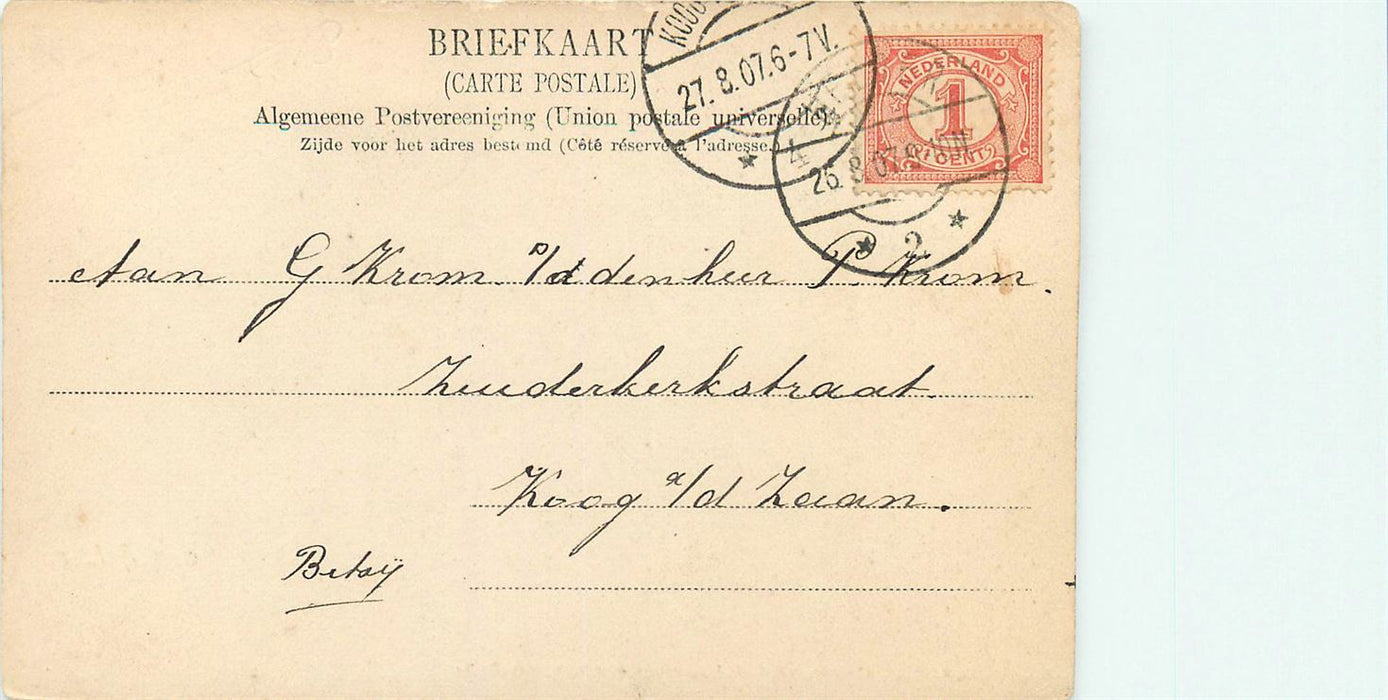 BRIEFKAART
(CARTE POSTALE)
Algemeene Postvereeniging (Union postale universelle).
Zijde voor het adres bestemd (Côté réservé à l'adresse.)
KOOG
27.8.07.6-7V.
NEDERLAND
1
(1 CENT)
26.8.07.
2
Aan G Krom. p/d den heer P. Krom.
Zuiderkerkstraat.
Koog a/d Zaan.
Betsÿ